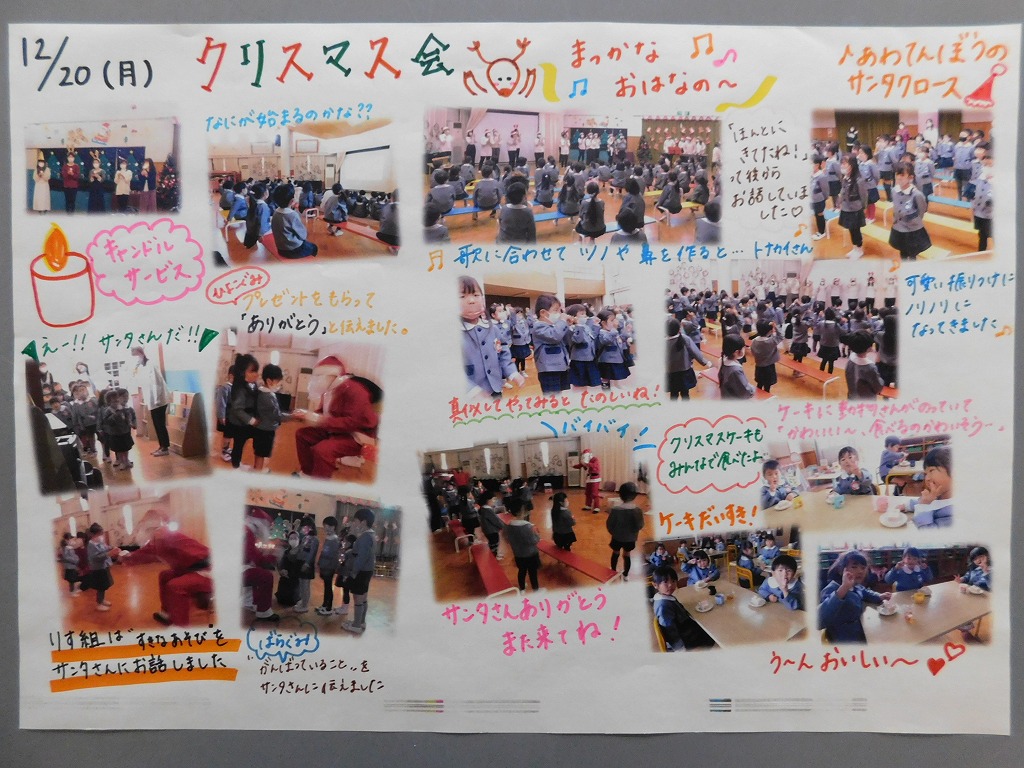 12/20(月)
クリスマス会
まっかな
おはなの〜
♪あわてんぼうの
サンタクロース
なにが始まるのかな??
「ほんとに
きてたね!」
って後から
お話していま
した♡
キャンドル
サービス
歌に合わせて ツノや 鼻を作ると… トナカイさん
可愛い振りつけに
ノリノリに
なってきました
ひよこぐみ
プレゼントをもらって
「ありがとう」と伝えました。
えー!! サンタさんだ!!
真似してやってみると たのしいね!
バイバイ!
クリスマスケーキも
みんなで食べたよ
ケーキに動物さんがのっていて
「かわいい〜、食べるのかわいそう…」
ケーキだいすき!
サンタさんありがとう
また来てね!
りす組は"すきなあそび"を
サンタさんにお話しました
ばらぐみ
"がんばっていること"を
サンタさんに伝えました
う〜ん おいしい〜